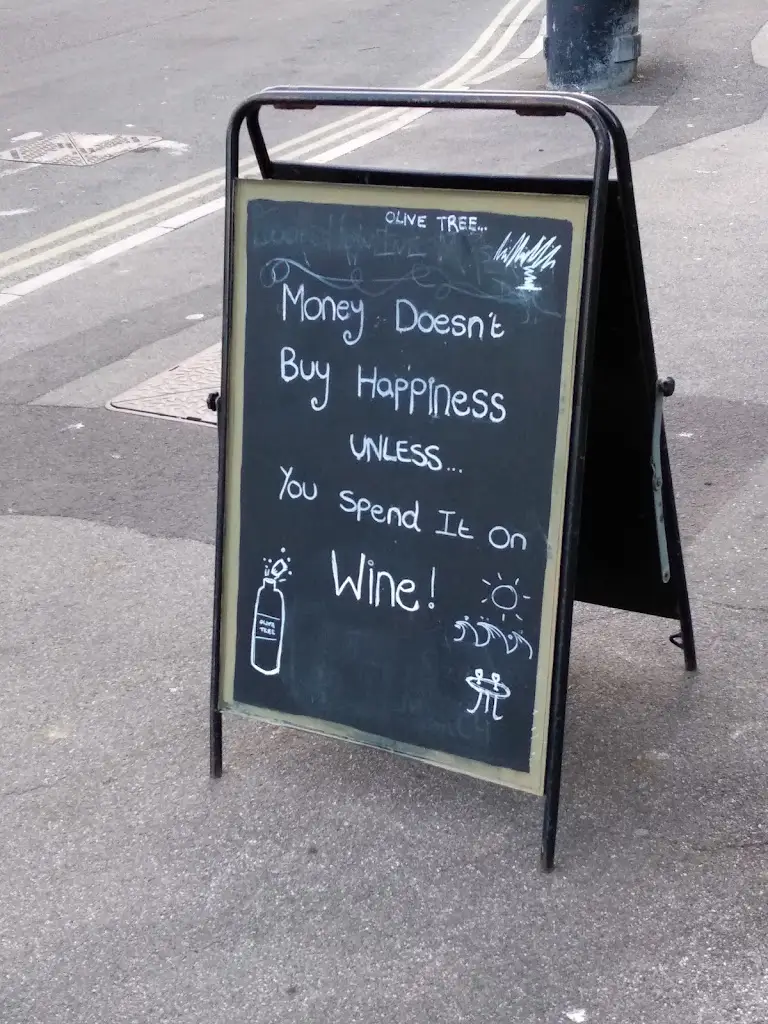 OLIVE TREE...
Money Doesn't
Buy Happiness
UNLESS...
You Spend It On
Wine!
OLIVE
TREE